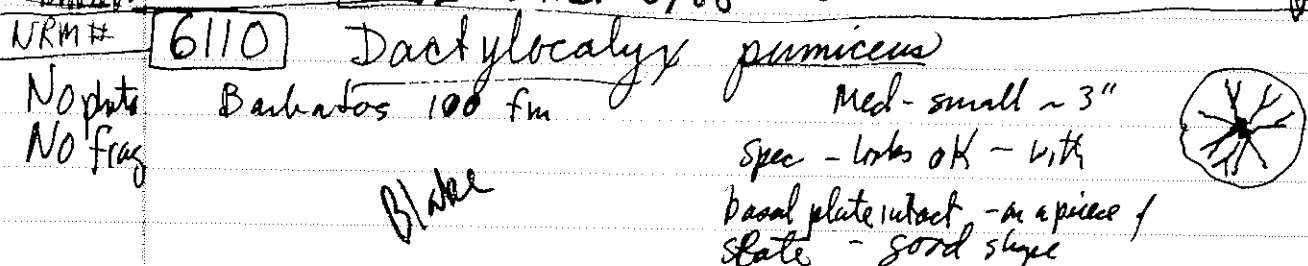 NRM# 6110 Dactylocalyx pumiceus
No photo Barbados 100 fm Med-small ~ 3"
No frag spec - looks OK - with
Blake basal plate intact - on a piece of
slate - good shape